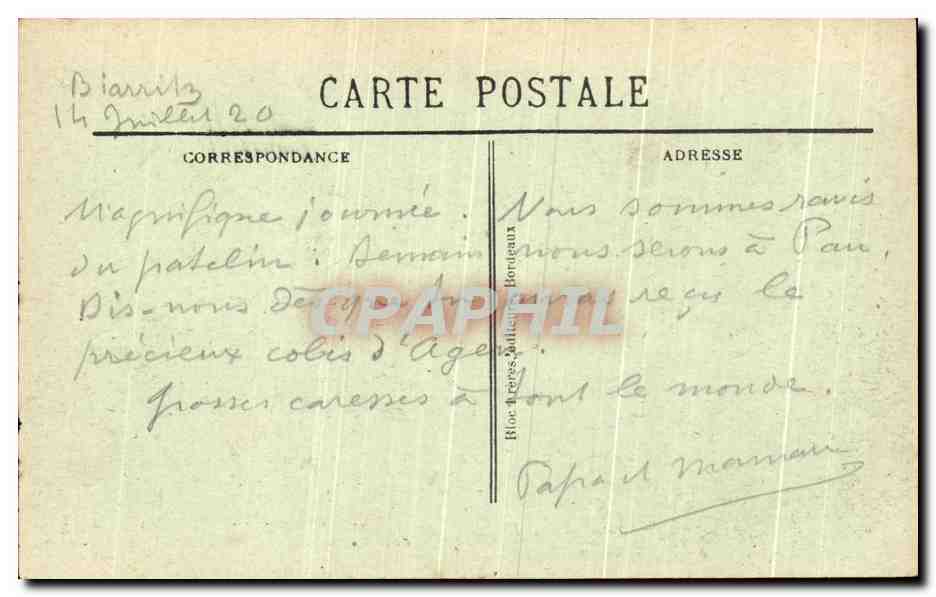 Biarritz
14 Juillet 20
CARTE POSTALE
CORRESPONDANCE
ADRESSE
Magnifique journée. Nous sommes ravis
du patelin : demain nous serons à Pau.
Dis-nous dès que tu auras reçu le
précieux colis d'Agen.
Grosses caresses à tout le monde.
Papa et Maman
Bloc Frères, éditeurs, Bordeaux
CPAPHIL